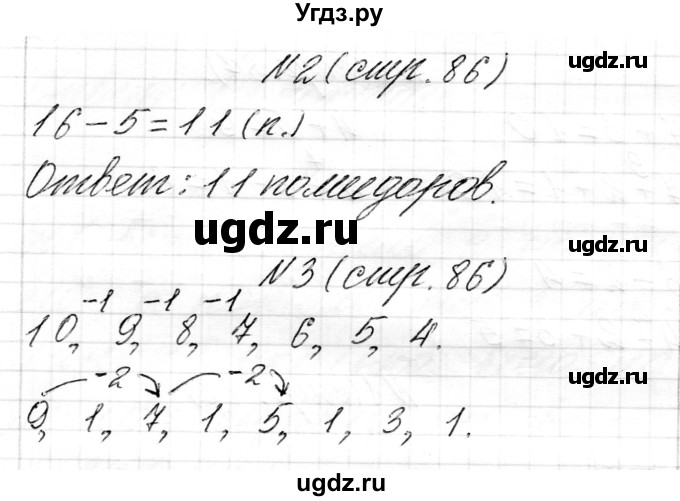 Угдз.ру
ugdz.ru
№2 (стр. 86)
16-5=11 (п.)
Ответ: 11 помидоров.
ugdz.ru
ugdz.ru
№3 (стр. 86)
-1 -1 -1
10, 9, 8, 7, 6, 5, 4.
ugdz.ru
-2 -2
9, 1, 7, 1, 5, 1, 3, 1.
ugdz.ru
ugdz.ru